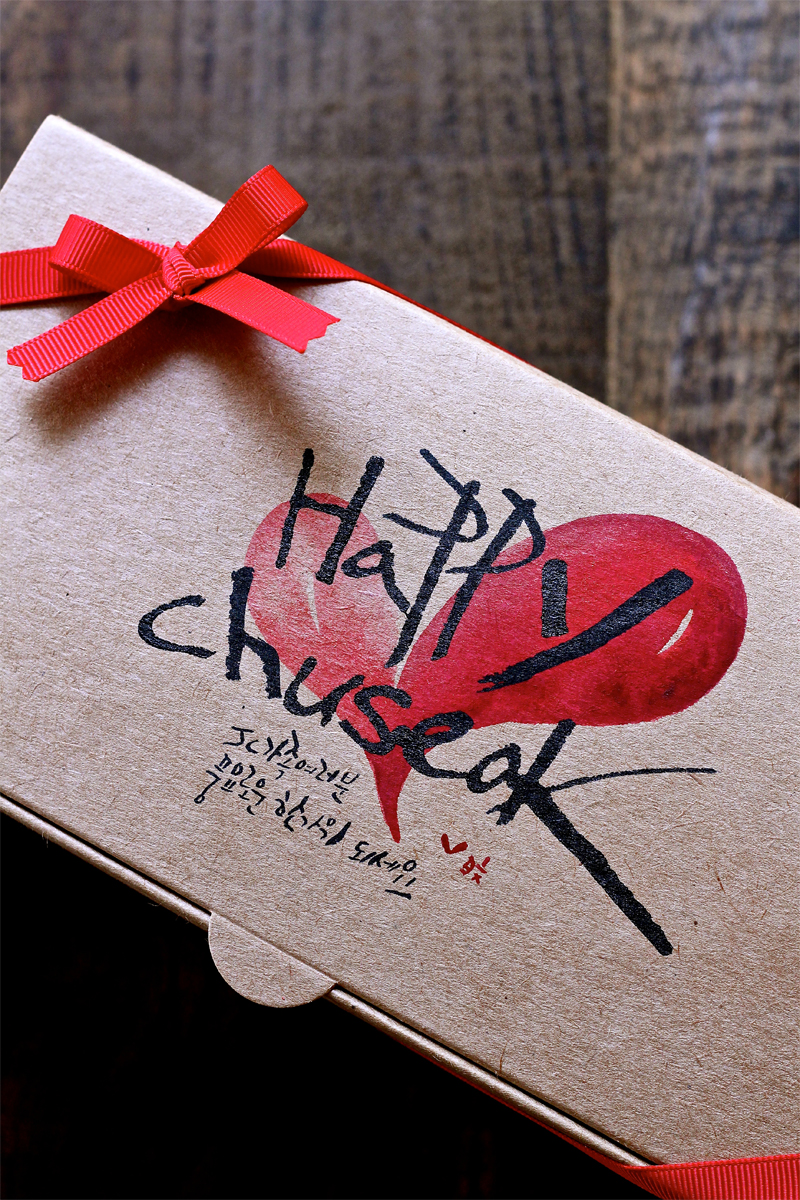 Happy
chuseok
JC가족여러분
풍요로운 한가위 되세요